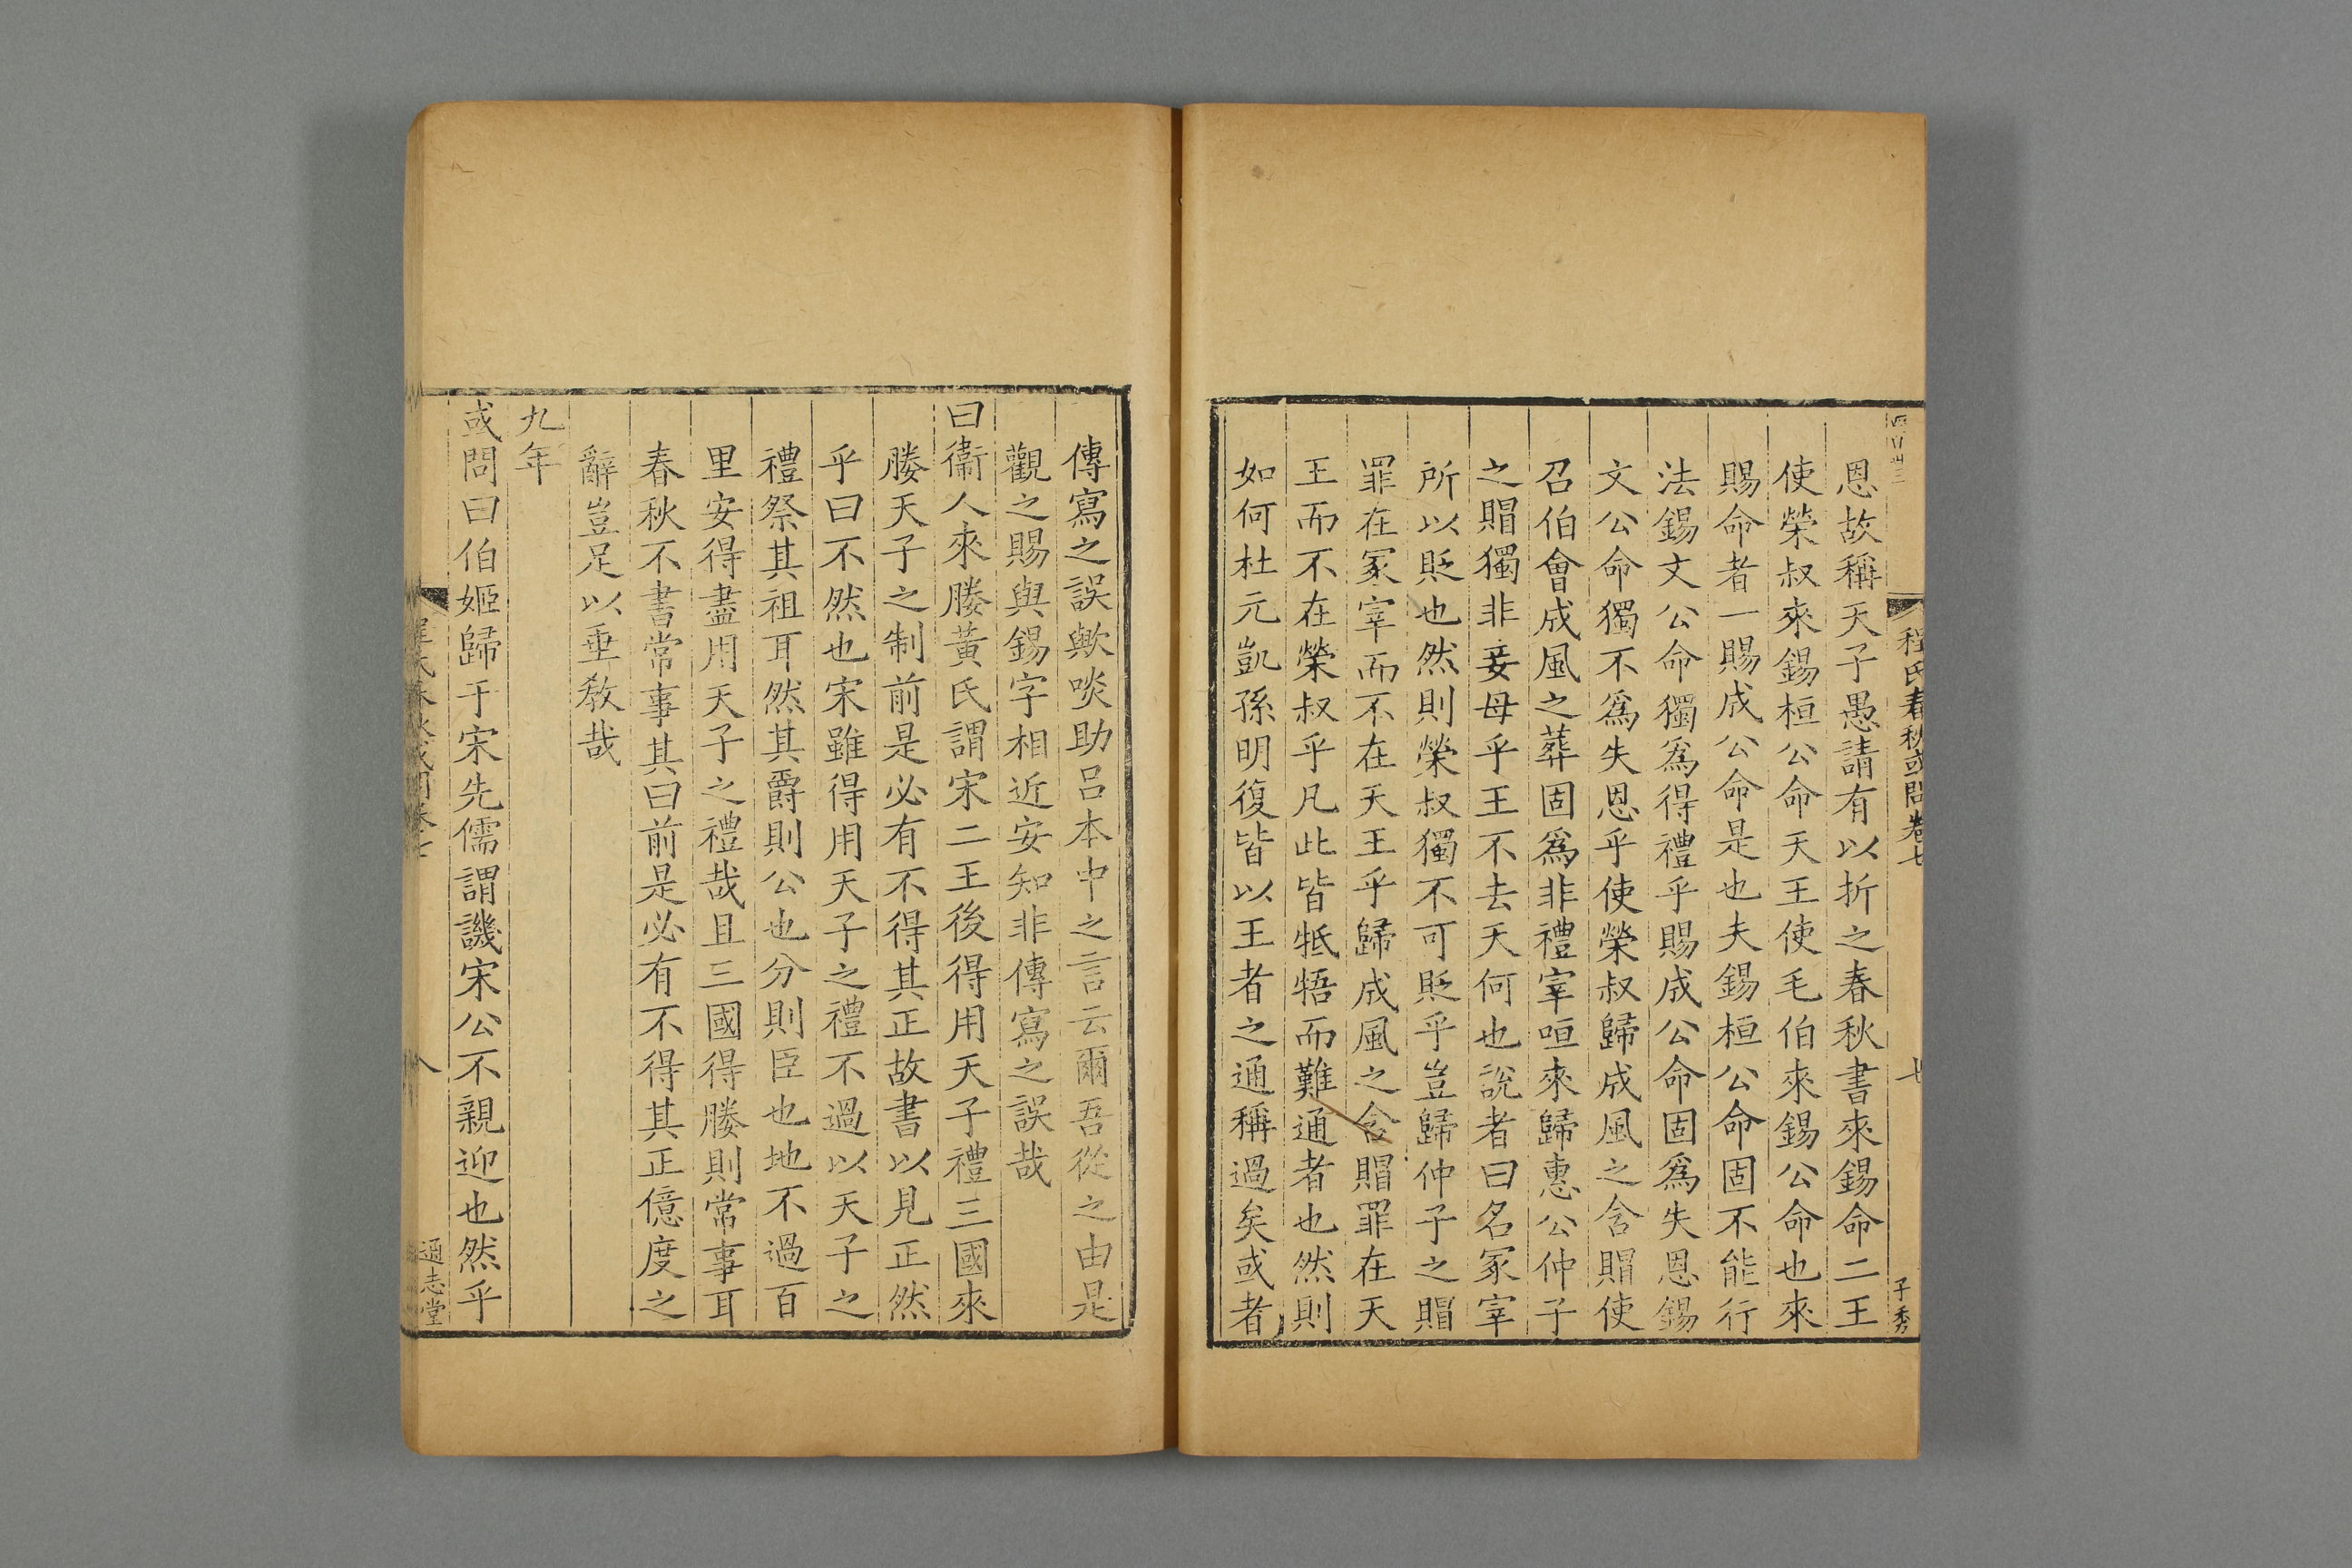 程氏春秋或問卷七
七
子秀
恩故稱天子愚請有以折之春秋書來錫命二王
使榮叔來錫桓公命天王使毛伯來錫公命也來
賜命者一賜成公命是也夫錫桓公命固不能行
法錫文公命獨爲得禮乎賜成公命固爲失恩錫
文公命獨不爲失恩乎使榮叔歸成風之含賵使
召伯會成風之葬固爲非禮宰咺來歸惠公仲子
之賵獨非妾母乎王不去天何也說者曰名冢宰
所以貶也然則榮叔獨不可貶乎豈歸仲子之賵
罪在冢宰而不在天王乎歸成風之含賵罪在天
王而不在榮叔乎凡此皆牴牾而難通者也然則
如何杜元凱孫明復皆以王者之通稱過矣或者
傳寫之誤歟啖助呂本中之言云爾吾從之由是
觀之賜與錫字相近安知非傳寫之誤哉
曰衞人來媵黃氏謂宋二王後得用天子禮三國來
媵天子之制前是必有不得其正故書以見正然
乎曰不然也宋雖得用天子之禮不過以天子之
禮祭其祖耳然其爵則公也分則臣也地不過百
里安得盡用天子之禮哉且三國得媵則常事耳
春秋不書常事其曰前是必有不得其正億度之
辭豈足以垂敎哉
九年
或問曰伯姬歸于宋先儒謂譏宋公不親迎也然乎
程氏春秋或問卷七
八
通志堂